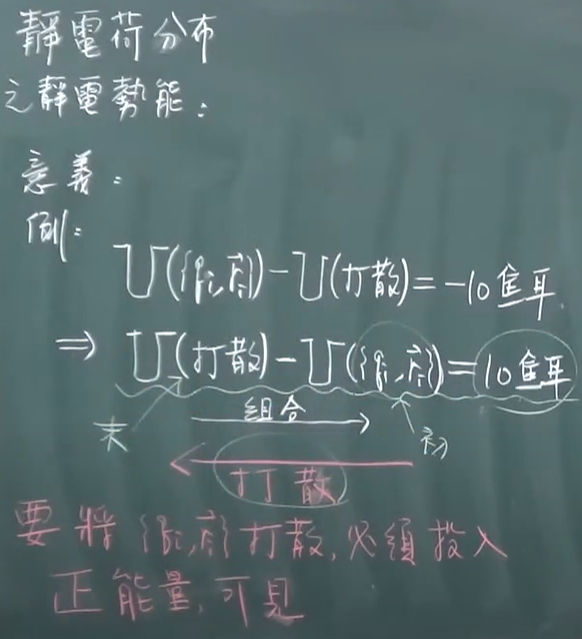 靜電荷分布
之靜電勢能:
意義:
例:
U( )-U(打散)=-10焦耳
⇒ U(打散)-U( )=10焦耳
末 組合 初
打散
要將 打散,必須投入
正能量,可見